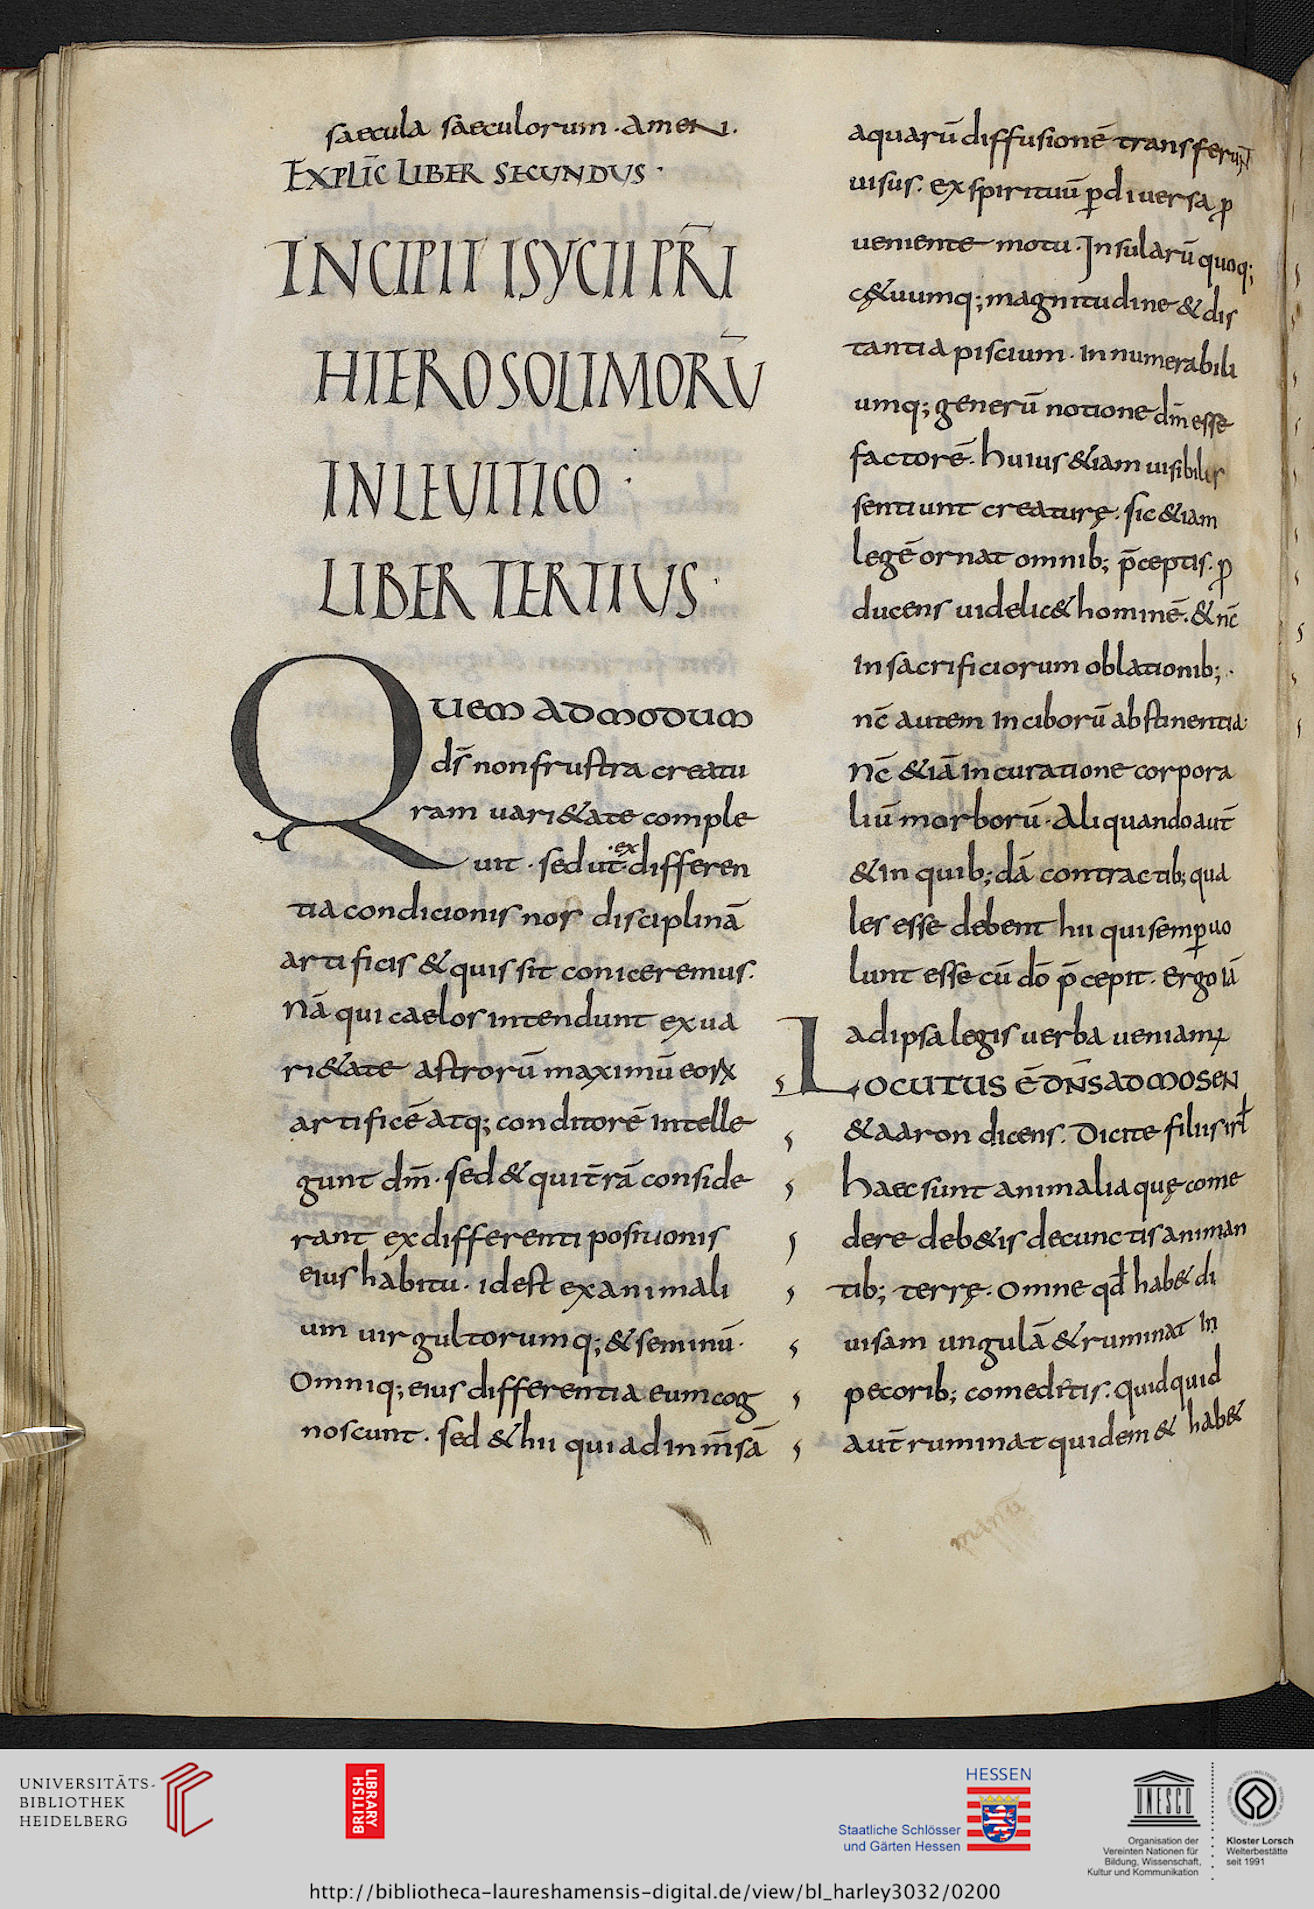 saecula saeculorum · amen.
EXPLIC̄ LIBER SECUNDUS ·
INCIPIT ISYCII PR̄I
HIEROSOLIMORŪ
IN LEVITICO ·
LIBER TERTIUS ·
QUEMADMODUM
ds̄ non frustra creatu
ram uari&ate comple
uit · sed ut ex differen
tia condicionis nos disciplinā
artificis & quis sit coniceremus.
Nā qui caelos intendunt ex ua
ri&ate astrorū maximū eoꝝ
artificē atq; conditorē intelle
gunt dm̄ · sed & qui t̄rā conside
rant ex differenti positionis
eius habitu · id est ex animali
um uirgultorumq; & seminū ·
Omniq; eius differentia eum cog
noscunt · sed & hii qui ad inm̄sā
aquarū diffusionē transferunt
uisus. ex spirituū ꝑ diuersa ꝓ
ueniente motu · Insularū quoq;
c&uumq; magnitudine & dis
tantia piscium · innumerabili
umq; generū notione dm̄ esse
factorē. huius &iam uisibilis
sentiunt creaturę. sic &iam
legē ornat omnib; p̄ceptis. ꝓ
ducens uidelic& hominē. & nc̄
in sacrificiorum oblationib; ·
nc̄ autem in ciborū abstinentia
nc̄ &iā in curatione corpora
liū morborū · Aliquando aut̄
& in quib;dā contractib; qua
les esse debent hii qui semꝑ uo
lunt esse cū dō p̄cepit · Ergo iā
ad ipsa legis uerba ueniam;
LOCUTUS Ē DN̄S AD MOSEN
& aaron dicens. Dicite filiis isrł
Haec sunt animalia quę come
dere deb&is de cunctis animan
tib; terrę. Omne qđ hab& di
uisam ungulā & ruminat in
pecorib; comed&is. quidquid
aut̄ ruminat quidem & hab&
manū
UNIVERSITÄTS-
BIBLIOTHEK
HEIDELBERG
BRITISH
LIBRARY
HESSEN
Staatliche Schlösser
und Gärten Hessen
UNESCO
Organisation der
Vereinten Nationen für
Bildung, Wissenschaft,
Kultur und Kommunikation
Kloster Lorsch
Welterbestätte
seit 1991
http://bibliotheca-laureshamensis-digital.de/view/bl_harley3032/0200